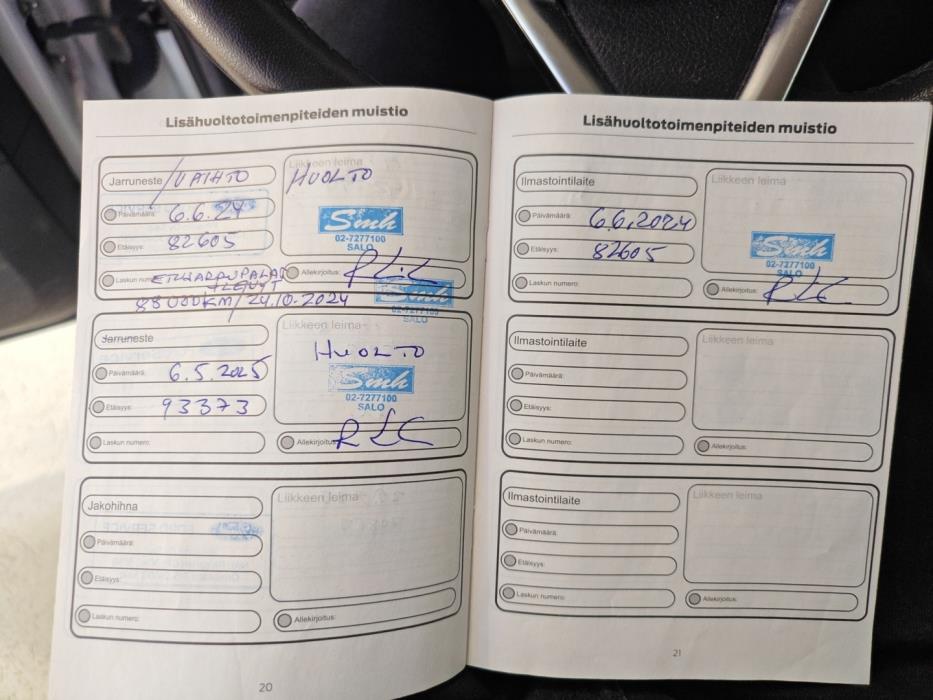 Lisähuoltotoimenpiteiden muistio
Jarruneste / VAIHTO
Päivämäärä: 6.6.24
Etäisyys: 82605
Laskun numero:
ETUJARRUPALAT
+LEVYT
88000KM/24.10.2024
Liikkeen leima
HUOLTO
Smh
02-7277100
SALO
Allekirjoitus:
Smh
02-7277100
Jarruneste
Päivämäärä: 6.5.2025
Etäisyys: 93373
Laskun numero:
Liikkeen leima
HUOLTO
Smh
02-7277100
SALO
Allekirjoitus:
Jakohihna
Päivämäärä:
Etäisyys:
Laskun numero:
Liikkeen leima
Allekirjoitus:
20
Lisähuoltotoimenpiteiden muistio
Ilmastointilaite
Päivämäärä: 6.6.2024
Etäisyys: 82605
Laskun numero:
Liikkeen leima
Smh
02-7277100
SALO
Allekirjoitus:
Ilmastointilaite
Päivämäärä:
Etäisyys:
Laskun numero:
Liikkeen leima
Allekirjoitus:
Ilmastointilaite
Päivämäärä:
Etäisyys:
Laskun numero:
Liikkeen leima
Allekirjoitus:
21